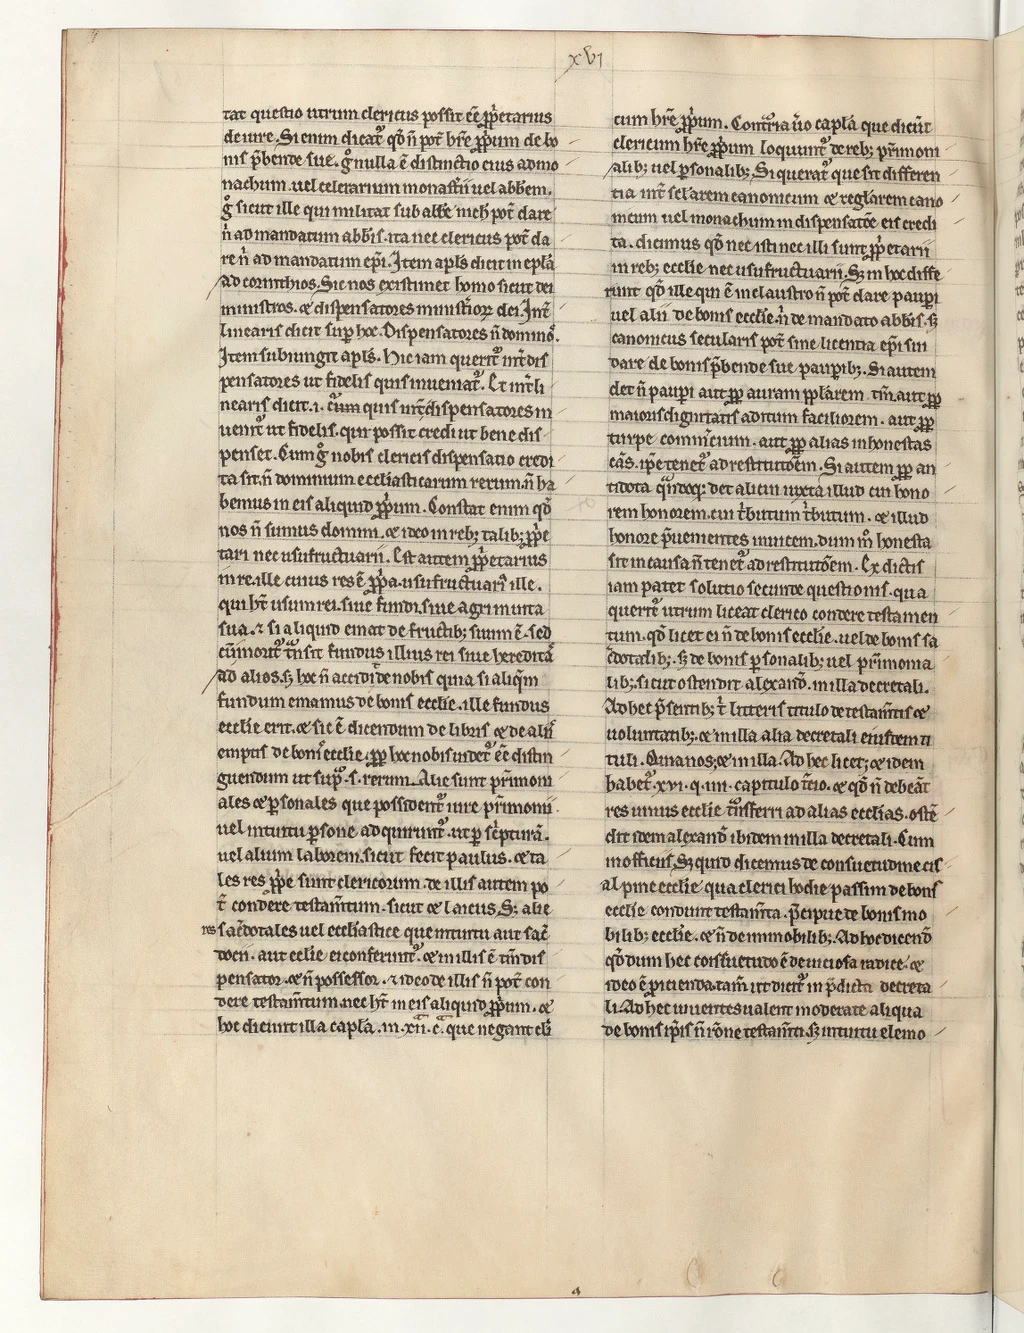 xvi
tat questio utrum clericus possit eē ṗp̄etarius
de iure. Si enim dicat᷑ qđ ñ pot̄ hr̄e ṗpum de bo
nis p̄bende sue. g̊ nulla ē distinctio eius ad mo
nachum uel celerarium monast̄ii uel abb̄em.
g̊ sicut ille qui militat sub abb̄e nich̄ pot̄ dare
ñ ad mandatum abb̄is. ita nec clericus pot̄ da
re ñ ad mandatum ep̄i. Item apl̄s dicit in epl̄a
ad corinthios. Sic nos existimet homo sicut dei
ministros. ⁊ dispensatores minist̄ioꝝ dei. Int̄
linearis dicit sup̄ hoc. Dispensatores ñ dominos.
Item subiungit apl̄s. Hic iam querit᷑ int̄ dis
pensatores ut fidelis quis inueniat᷑. Et int̄li
nearis dicit .i. cum quis int̄ dispensatores in
uenit᷑ ut fidelis. qui possit credi ut bene dis
penset. Cum g̊ nobis clericis dispensatio credi
ta sit. ñ dominium eccl̄iasticarum rerum. ñ ha
bemus in eis aliquid ṗpum. Constat enim qđ
nos ñ sumus domini. ⁊ ideo in reb; talib; ṗpe
tari nec usufructuarii. Est autem ṗpetarius
in re. ille cuius res ē ṗpa. usufructuari᷒ ille.
qui ht̄ usum rei. siue fundi. siue agri in uita
sua. ⁊ si aliquid emat de fructib; suum ē. sed
cū morit᷑ t̄nsit fundus illius rei siue heredita
ad alios. s; hoc ñ accidit de nobis quia si aliqm̄
fundum emamus de bonis eccl̄ie. ille fundus
eccl̄ie erit. ⁊ sic ē dicendum de libris ⁊ de aliis
emptis de bonis eccl̄ie. ṗp hoc nobis uidet᷑ eē distin
guendum ut sup̄. s. rerum. Alie sunt pr̄imoni
ales ⁊ p̱sonales que possident᷑ iure pr̄imonii.
uel intuitu p̱sone adquirunt᷑. ut p̱ sc̄pturā.
uel alium laborem. sicut fecit paulus. ⁊ ta
les res ṗpe sunt clericorum. de illis autem po
t̄ condere testam̄tum. sicut ⁊ laicus. S; alie
res sac̄dotales uel eccl̄iastice que intuitu aut sac̄
docii. aut eccl̄ie ei conferunt᷑. ⁊ in illis ē tm̄ dis
pensator. ⁊ ñ possessor. ⁊ ideo de illis ñ pot̄ con
dere testam̄tum. nec ht̄ in eis aliquid ṗpum. ⁊
hoc dicunt illa capl̄a. in. xii. c̄. que negant cl̄i
cum hr̄e ṗpum. Contraria u̅o capl̄a que dicūt
clericum hr̄e ṗpum loquunt᷑ de reb; pr̄imoni
alib; uel p̱sonalib; Si querat᷑ que sit differen
tia int̄ sclarem canonicum ⁊ regl̄arem cano
nicum uel monachum in dispensatōe eis credi
ta. dicimus qđ nec isti nec illi sunt ṗpetarii
in reb; eccl̄ie nec usufructuarii. S; in hoc diffe
runt qđ ille qui ē in claustro ñ pot̄ dare paup̱i
uel alii de bonis eccl̄ie. ñ de mandato abb̄is. s;
canonicus secularis pot̄ sine licentia ep̄i sui
dare de bonis p̄bende sue paup̱ib;. Si autem
det ñ paup̱i aut ṗp auram ppl̄arem tm̄. aut ṗp
maioris dignitatis aditum faciliorem. aut ṗp
turpe comm̄cium. aut ṗp alias inhonestas
cās. ip̄e tenet᷑ ad restitutōem. Si autem ṗp an
tidota quādoq; det alicui iuxta illud cui hono
rem honorem. cui t̄butum t̄butum. ⁊ illud
honore p̄uenientes inuicem. dum m̊ honesta
sit in causa ñ tenet᷑ ad restitutōem. Ex dictis
iam patet solutio secunde questionis. qua
querit᷑ utrum liceat clerico condere testamen
tum. qđ licet ei ñ de bonis eccl̄ie. uel de bonis sa
c̄dotalib;. s; de bonis p̱sonalib; uel pr̄imonia
lib;. sicut ostendit alexand̄. in illa decretali.
Ad hec p̄sentib; t̄ litteris titulo de testam̄tis ⁊
uoluntatib;. ⁊ in illa alia decretali eiusdem ti
tuli. Quia nos; ⁊ in illa. Ad hec licet; ⁊ idem
habet᷑. xvi. q. iiii. capitulo t̄cio. ⁊ qđ ñ debeāt
res unius eccl̄ie t̄nsferri ad alias eccl̄ias. ostē
dit idem alexand̄ ibidem in illa decretali. Cum
in officiis. S; quid dicemus de consuetudine cis
alpine eccl̄ie qua clerici hodie passim de bonis
eccl̄ie condunt testam̄ta. p̄cipue de bonis mo
bilib; eccl̄ie. ⁊ ñ de inmobilib;. Ad hoc dicend̄
qđ dum hec consuetudo ē de uiciosa radice. ⁊
ideo ē p̄cienda. tam̄ ut dicit᷑ in p̄dicta decreta
li. Ad hec uiuentes ualent moderate aliqua
de bonis ip̄is ñ rōne testam̄ti. s; intuitu elemo